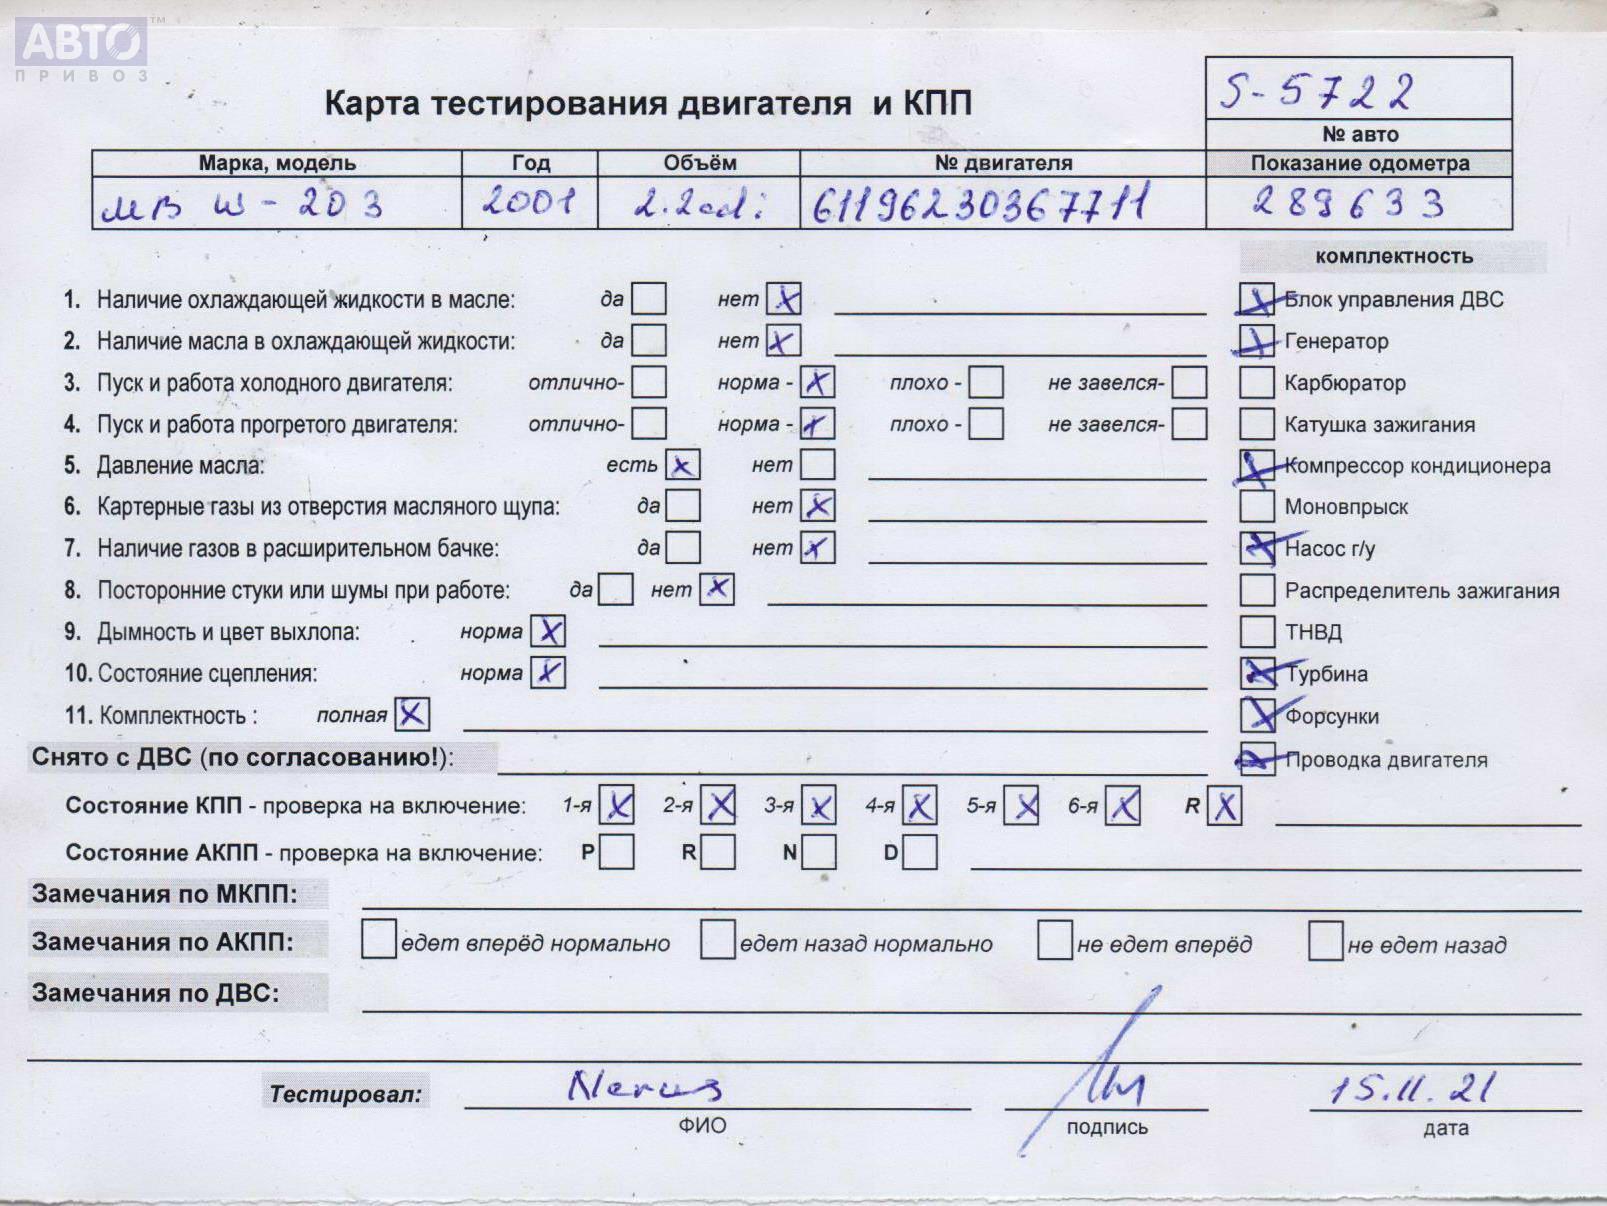 АВТО ™
ПРИВОЗ
Карта тестирования двигателя и КПП
S-5722
№ авто
Марка, модель Год Объём № двигателя Показание одометра
MB W-203 2001 2.2cdi 61196230367711 289633
комплектность
1. Наличие охлаждающей жидкости в масле: да нет X Блок управления ДВС
2. Наличие масла в охлаждающей жидкости: да нет X Генератор
3. Пуск и работа холодного двигателя: отлично- норма - X плохо - не завелся- Карбюратор
4. Пуск и работа прогретого двигателя: отлично- норма - X плохо - не завелся- Катушка зажигания
5. Давление масла: есть X нет Компрессор кондиционера
6. Картерные газы из отверстия масляного щупа: да нет X Моновпрыск
7. Наличие газов в расширительном бачке: да нет X Насос г/у
8. Посторонние стуки или шумы при работе: да нет X Распределитель зажигания
9. Дымность и цвет выхлопа: норма X ТНВД
10. Состояние сцепления: норма X Турбина
11. Комплектность : полная X Форсунки
Снято с ДВС (по согласованию!): Проводка двигателя
Состояние КПП - проверка на включение: 1-я X 2-я X 3-я X 4-я X 5-я X 6-я X R X
Состояние АКПП - проверка на включение: P R N D
Замечания по МКПП:
Замечания по АКПП: едет вперёд нормально едет назад нормально не едет вперёд не едет назад
Замечания по ДВС:
Тестировал: 15.11.21
ФИО подпись дата